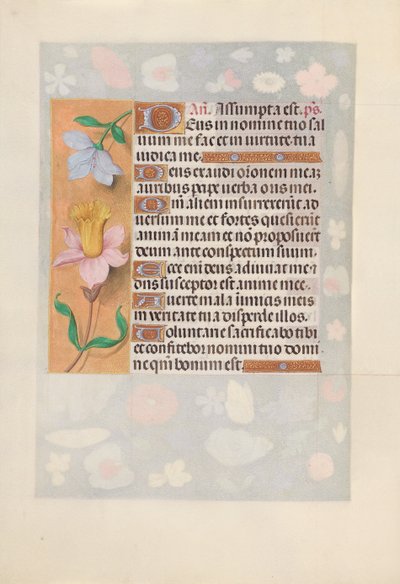 An̄. Assumpta est. ps.
Deus in nomine tuo sal
uum me fac et in uirtute tua
iudica me.
Deus exaudi or̄onem meaȝ
auribus p̄cipe uerba oris mei.
Qm̄ alieni insurrexerūt ad
uersum me et fortes quesierūt
animā meam et nō proposuerūt
deum ante conspectum suum.
Ecce enī deus adiuuat me et
dn̄s susceptor est anime mee.
Auerte mala inimicis meis
in ueritate tua disperde illos.
Voluntarie sacrificabo tibi
et confitebor nomini tuo domi
ne qm̄ bonum est.